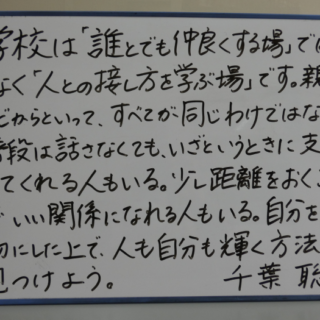 学校は「誰とでも仲良くする場」で
なく「人との接し方を学ぶ場」です。親
だからといって、すべてが同じわけではな
段は話さなくても、いざというときに支
てくれる人もいる。少し距離をおくこ
いい関係になれる人もいる。自分を
切にした上で、人も自分も輝く方法
見つけよう。 千葉 聡